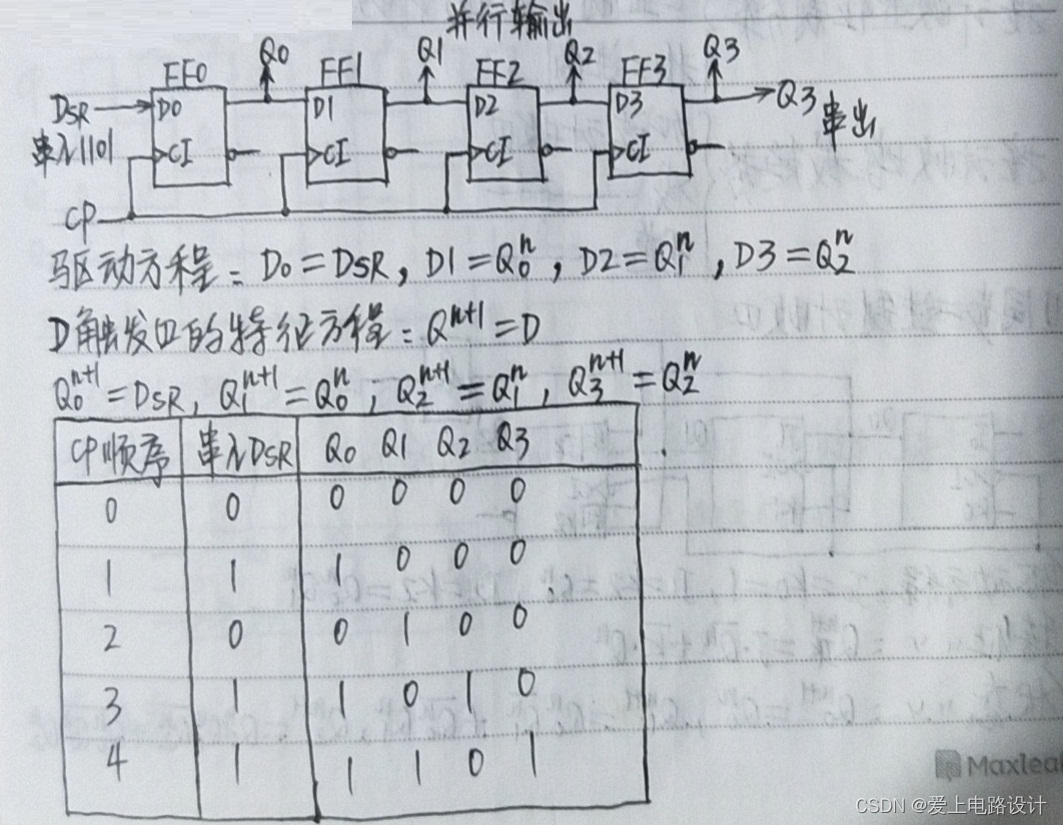 并行输出
Q0 Q1 Q2 Q3
FF0 FF1 FF2 FF3
DSR D0 D1 D2 D3 Q3 串出
串入1101 CI CI CI CI
CP
驱动方程: D0=DSR, D1=Q0^n, D2=Q1^n, D3=Q2^n
D触发口的特征方程: Q^n+1=D
Q0^n+1=DSR, Q1^n+1=Q0^n; Q2^n+1=Q1^n, Q3^n+1=Q2^n
CP顺序 串入DSR Q0 Q1 Q2 Q3
0 0 0 0 0 0
1 1 1 0 0 0
2 0 0 1 0 0
3 1 1 0 1 0
4 1 1 1 0 1
Maxleaf
CSDN @爱上电路设计